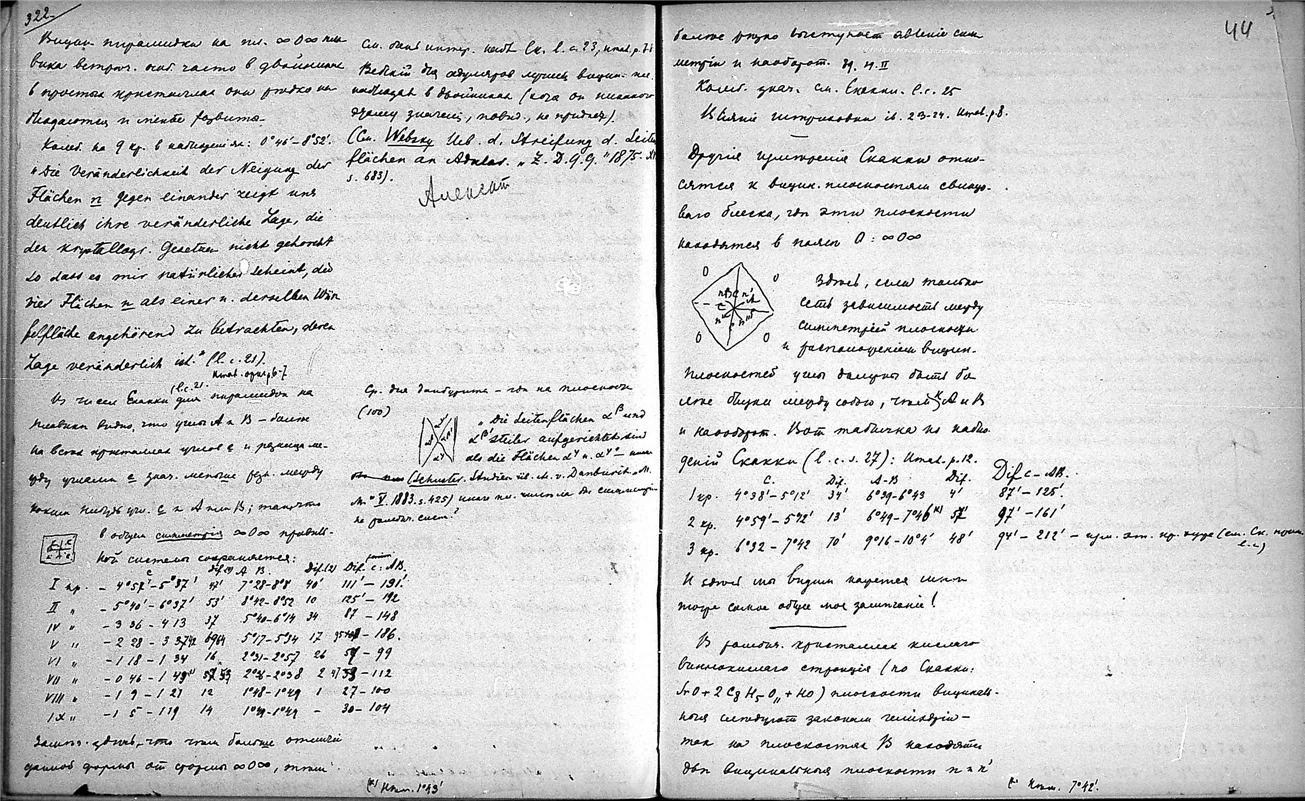 322.
Вицин. пирамидки на пл. ∞0∞ пла-
вика встреч. очень часто в двойниках
в простых кристаллах они редко на-
блюдаются и менее развиты.
Колеб. на 9 кр. в наблюдениях: 0°46'–8°52'.
„Die Veränderlichkeit der Neigung der
Flächen n gegen einander zeigt uns
deutlich ihre veränderliche Lage, die
den krystallogr. Gesetzen nicht gehorcht
so dass es mir natürlicher scheint, die
vier Flächen n als einer u. derselben Wür-
felfläche angehörend zu betrachten, deren
Lage veränderlich ist." (l. c. 21).
(l. c. 21.
Из чисел Скакки для пирамидок на
плавике видно, что углы A и B – более
на всех кристаллах углов c и разница ме-
жду углами c знач. меньше разн. между
каким нибудь угл. c и A или B; так что
в общем симметрия ∞0∞ правиль-
ной системы сохраняется:
c. Dif.(1) A B. Dif.(2) Dif. c: AB.
I кр. – 4°57'–5°37' 7°28–8°8 40' 111' – 191'.
II „ – 5°40'–6°37' 53' 8°42–8°52 10 125' – 192
IV „ – 3 36 – 4 13 37 5°40–6°14 34 87 – 148
V „ – 2 28 – 3 5°17–5°34 17 – 186.
VI „ – 1 18 – 1 34 16 2°31–2°57 26 – 99
VII „ – 0 46 – 1 2 – 112
VIII „ – 1 9 – 1 21 12 1°48–1°49 1 27–100
IX „ – 1 5 – 1 19 14 1°49–1°49 – 30–104
Замеч. здесь, что чем больше отличие
данной формы от формы ∞0∞, тем
См. очень интер. набл. Ск. l. c. 23,
Вебский для адуляров лучшие вицин. пл.
наблюдал в двойниках (хотя он никакого
этому значения, повид., не придает).
(См. Websky Ueb. d. Streifung d. Seiten-
flächen an Adular. „Z. D. G. G." 1875.
s. 683).
Ср. для данбурита – где на плоскости
(100)
„Die Seitenflächen α β und
α β' steiler aufgerichtet sind
als die Flächen α γ u. α γ'
(Schuster. Studien üb. d. v. Danburit. M.
M." V. 1883. s. 425)
не ромбич. сист.?
(*) Изм. 1°43'
44
более резко выступает явление сим-
метрии и наоборот.
Колеб. знач. см. Скакки. l. c. 25
Влияние штриховки ib. 23–24.
Другие измерения Скакки отно-
сятся к вицин. плоскостям свинцо-
ваго блеска, где эти плоскости
находятся в поясе 0 : ∞0∞
0 0 0 0
Здесь, если только
есть зависимость между
симметрией плоскости
и расположением вицин.
плоскостей углы должны быть бо-
лее близки между собою, чем c A и B
и наоборот. Вот табличка из наблю-
дений Скакки (l. c. s. 27):
c. Dif. A–B Dif. Dif c – AB.
1 кр. 4°38'–5°12' 34' 6°39–6°43 4' 87' – 125'.
2 кр. 4°59'–5°12' 13' 6°49–7°46(*) 57' 97' – 161'
3 кр. 6°32 – 7°42 70' 9°16–10°4' 48' 94' – 212' – изм. от. кр. хуже (см. Ск.
l. c.)
И здесь мы видим кажется опять
тоже самое общее мое замечание!
В ромбич. кристаллах кислаго
виннокислаго стронция (по Скакки:
плоскости вициналь-
ныя следуют законам гемиедрии –
так на плоскостях B находятся
две вицинальныя плоскости n и n'
(*) Изм. 7°42'.